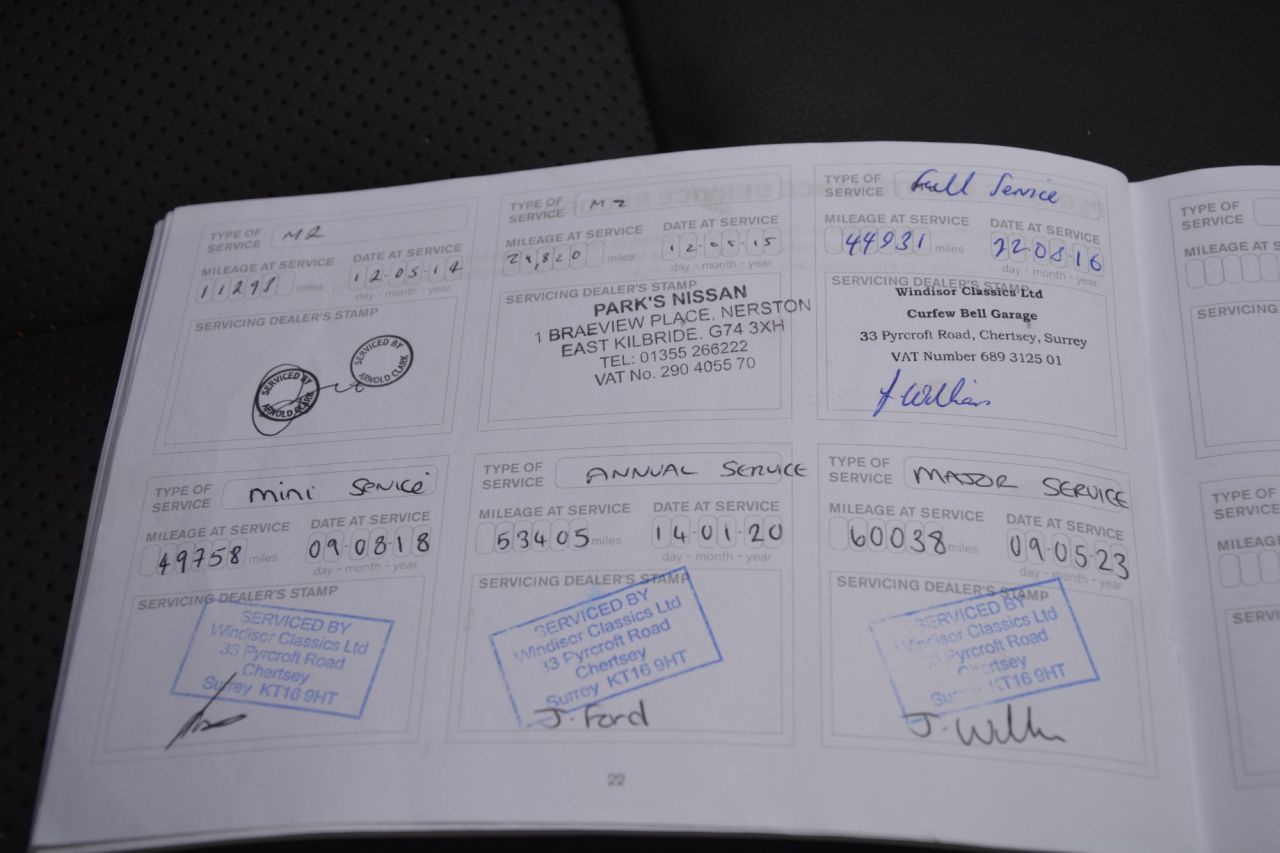 TYPE OF SERVICE M2
MILEAGE AT SERVICE DATE AT SERVICE
miles 12-05-14
day - month - year
SERVICING DEALER'S STAMP
SERVICED BY ARNOLD CLARK
SERVICED BY ARNOLD CLARK
TYPE OF SERVICE M2
MILEAGE AT SERVICE DATE AT SERVICE
12-05-15
day - month - year
SERVICING DEALER'S STAMP
PARK'S NISSAN
1 BRAEVIEW PLACE, NERSTON
EAST KILBRIDE. G74 3XH
TEL: 01355 266222
VAT No. 290 4055 70
TYPE OF SERVICE Full Service
MILEAGE AT SERVICE DATE AT SERVICE
44931 miles 22-08-16
day - month - year
SERVICING DEALER'S STAMP
Windisor Classics Ltd
Curfew Bell Garage
33 Pyrcroft Road, Chertsey, Surrey
VAT Number 689 3125 01
TYPE OF SERVICE mini Service
MILEAGE AT SERVICE DATE AT SERVICE
49758 miles 09-08-18
day - month - year
SERVICING DEALER'S STAMP
SERVICED BY
Windisor Classics Ltd
33 Pyrcroft Road
Chertsey
Surrey KT16 9HT
TYPE OF SERVICE ANNUAL SERVICE
MILEAGE AT SERVICE DATE AT SERVICE
53405 miles 14-01-20
day - month - year
SERVICING DEALER'S STAMP
SERVICED BY
Windisor Classics Ltd
33 Pyrcroft Road
Chertsey
Surrey KT16 9HT
J. Ford
TYPE OF SERVICE MAJOR SERVICE
MILEAGE AT SERVICE DATE AT SERVICE
60038 miles 09-05-23
day - month - year
SERVICING DEALER'S STAMP
SERVICED BY
Windisor Classics Ltd
33 Pyrcroft Road
Chertsey
Surrey KT16 9HT
22
TYPE OF SERVICE
MILEAGE AT S
SERVICING
TYPE OF SERVICE
MILEAGE
SERVI